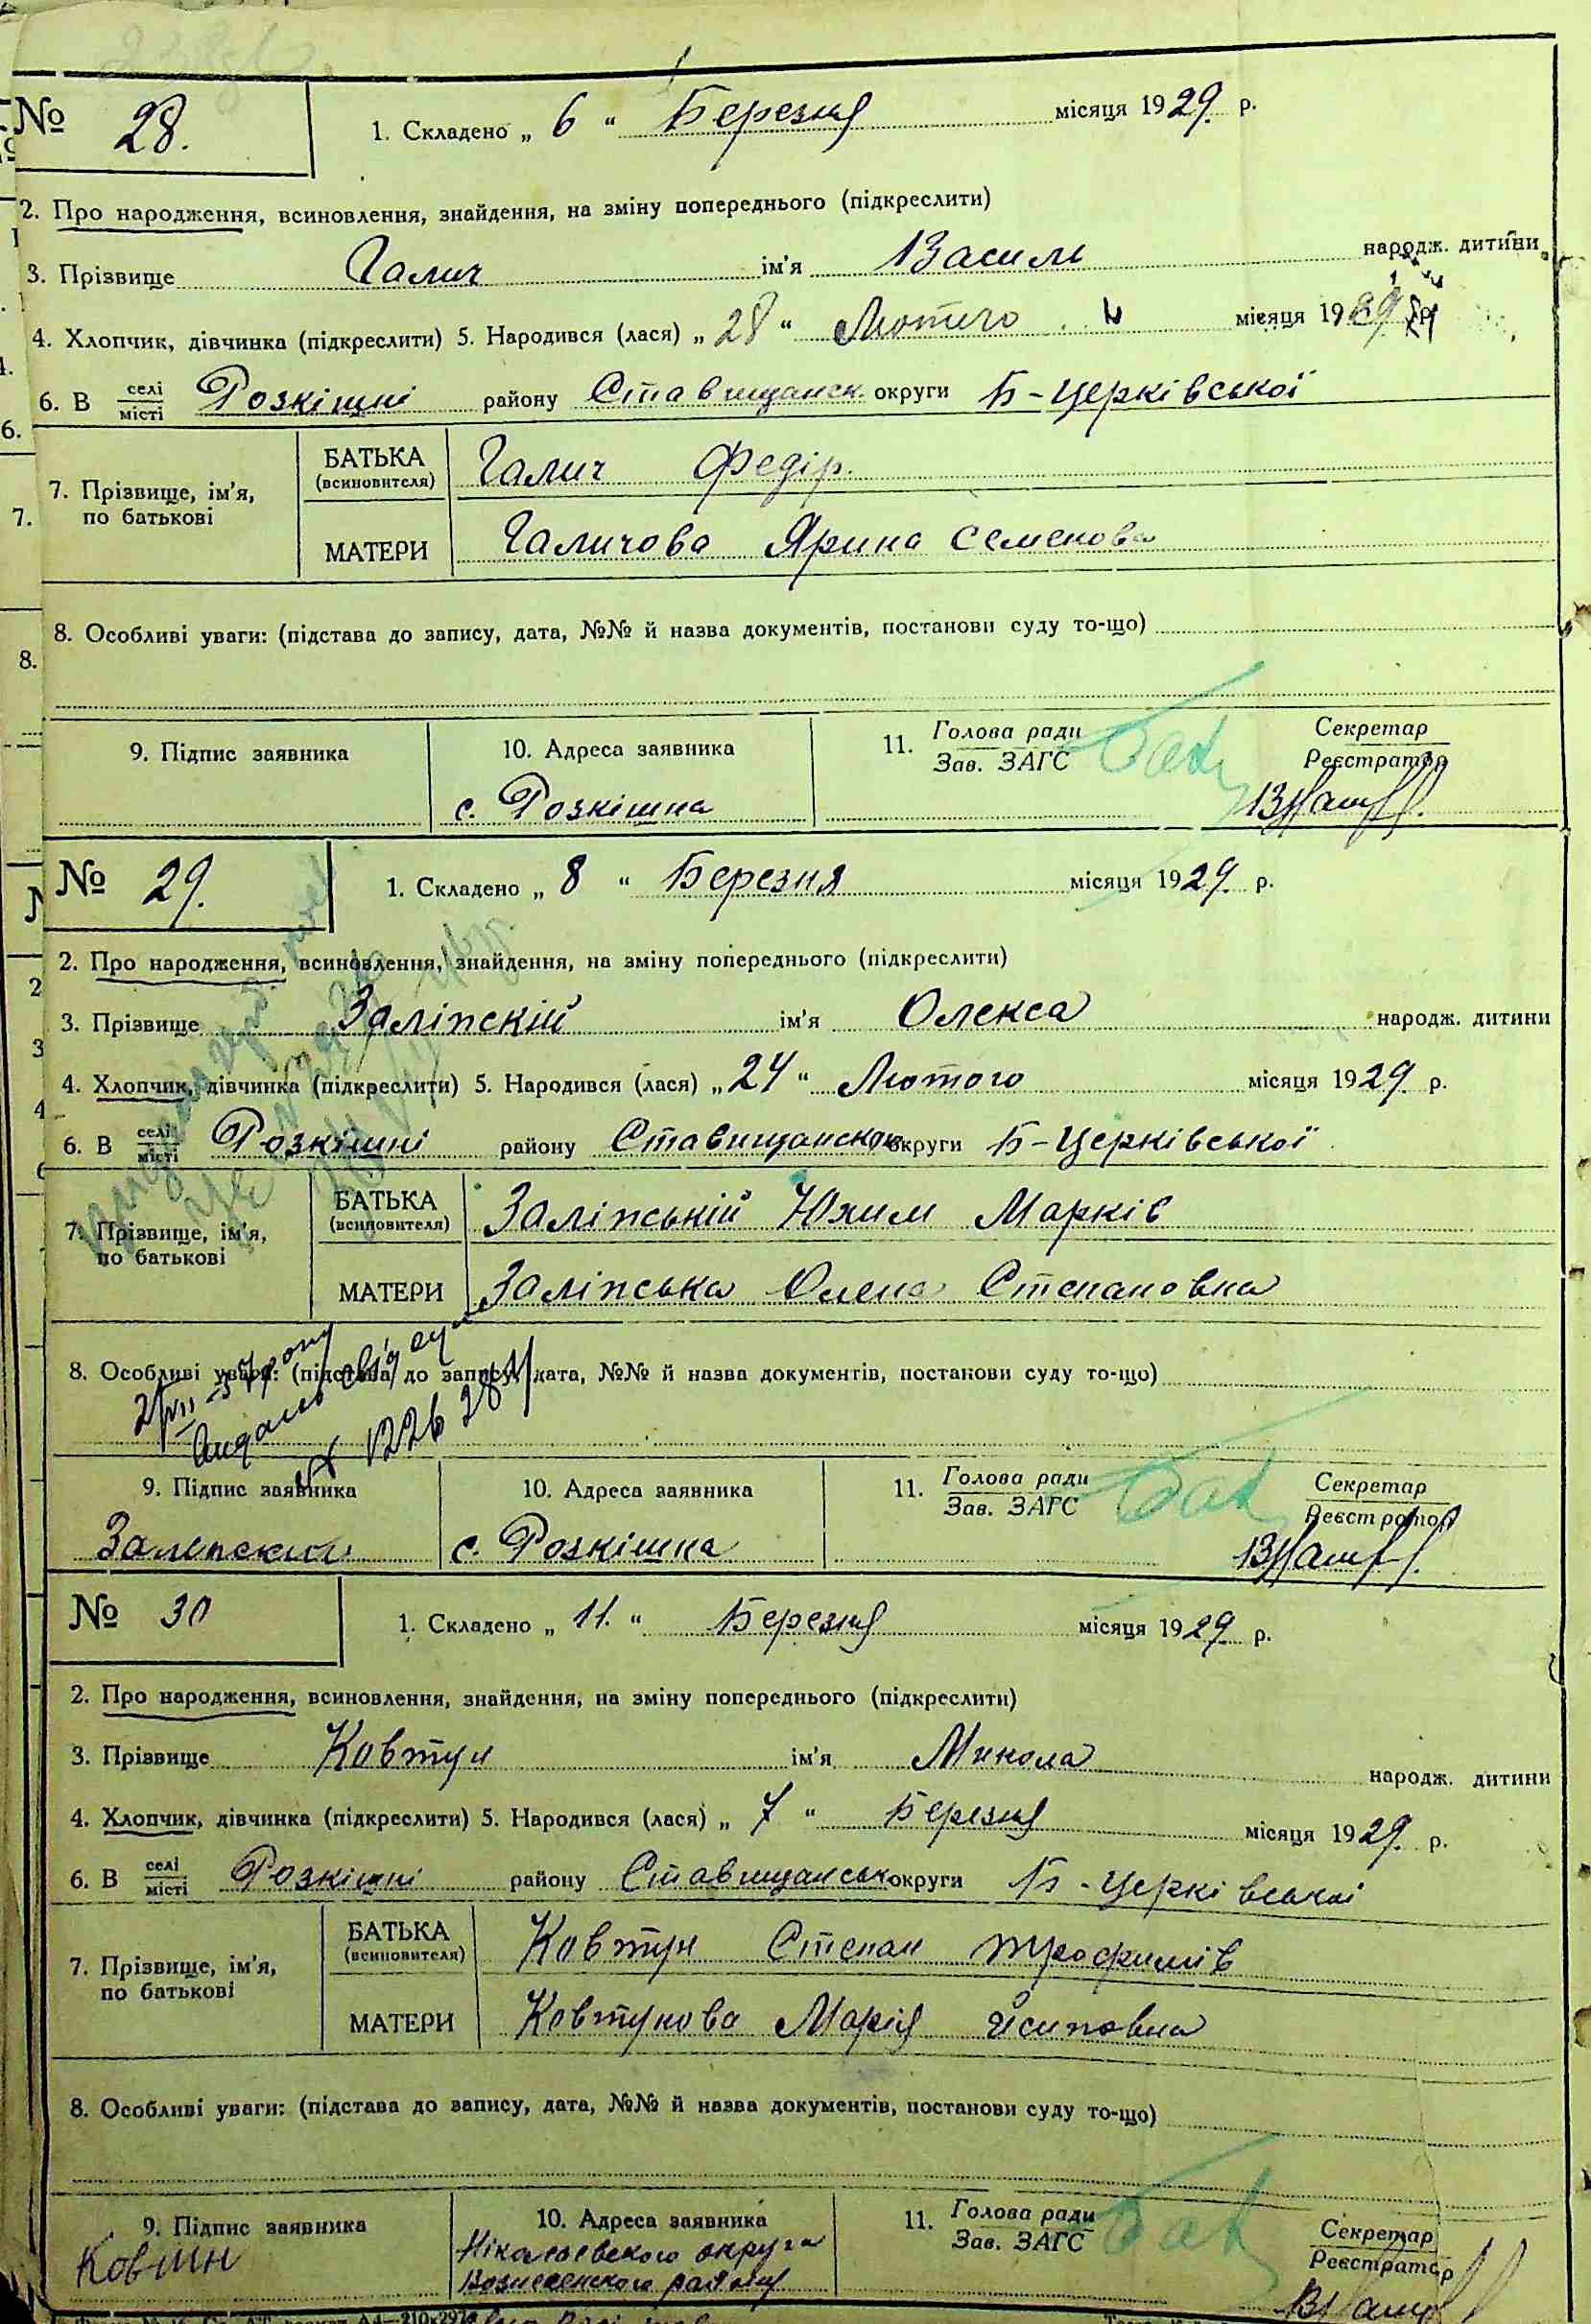 № 28. 1. Складено „ 6 “ Березня місяця 1929. р.
2. Про народження, всиновлення, знайдення, на зміну попереднього (підкреслити)
3. Прізвище Галич ім'я Василь народж. дитини
4. Хлопчик, дівчинка (підкреслити) 5. Народився (лася) „ 28 “ Лютого місяця 1929 р.
6. В селі/місті Розкішні району Ставищанск. округи Б-Церківської
7. Прізвище, ім'я, по батькові
БАТЬКА (всиновителя) Галич Федір.
МАТЕРИ Галичова Ярина Семенова
8. Особливі уваги: (підстава до запису, дата, №№ й назва документів, постанови суду то-що)
9. Підпис заявника 10. Адреса заявника 11. Голова ради Секретар
Зав. ЗАГС Реєстратор
с. Розкішна
№ 29. 1. Складено „ 8 “ Березня місяця 1929. р.
2. Про народження, всиновлення, знайдення, на зміну попереднього (підкреслити)
3. Прізвище Заліпскій ім'я Олекса народж. дитини
4. Хлопчик, дівчинка (підкреслити) 5. Народився (лася) „ 24 “ Лютого місяця 1929. р.
6. В селі/місті Розкішні району Ставищанског округи Б-Церківської
7. Прізвище, ім'я, по батькові
БАТЬКА (всиновителя) Заліпській Юхим Марків
МАТЕРИ Заліпська Олена Степановна
8. Особливі уваги: (підстава до запису, дата, №№ й назва документів, постанови суду то-що)
9. Підпис заявника 10. Адреса заявника 11. Голова ради Секретар
Зав. ЗАГС Реєстратор
Залепский с. Розкішна
№ 30 1. Складено „ 11. “ Березня місяця 1929. р.
2. Про народження, всиновлення, знайдення, на зміну попереднього (підкреслити)
3. Прізвище Ковтун ім'я Микола народж. дитини
4. Хлопчик, дівчинка (підкреслити) 5. Народився (лася) „ 7 “ Березня місяця 1929. р.
6. В селі/місті Розкішні району Ставищанськ округи Б-Церківської
7. Прізвище, ім'я, по батькові
БАТЬКА (всиновителя) Ковтун Степан Трофимів
МАТЕРИ Ковтунова Марія Йсиповна
8. Особливі уваги: (підстава до запису, дата, №№ й назва документів, постанови суду то-що)
9. Підпис заявника 10. Адреса заявника 11. Голова ради Секретар
Зав. ЗАГС Реєстратор
Ковтун Ніколаевского округа
Вознесенского району